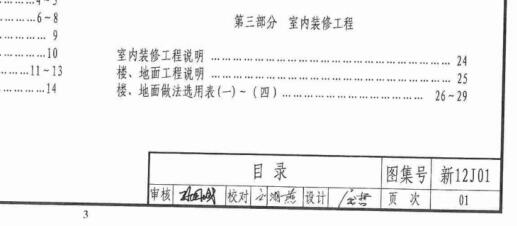 4~5
……6~8
……9
……10
……11~13
……14
第三部分 室内装修工程
室内装修工程说明……24
楼、地面工程说明……25
楼、地面做法选用表(一)~(四)……26~29
目录 图集号 新12J01
审核 校对 设计 页次 01
3